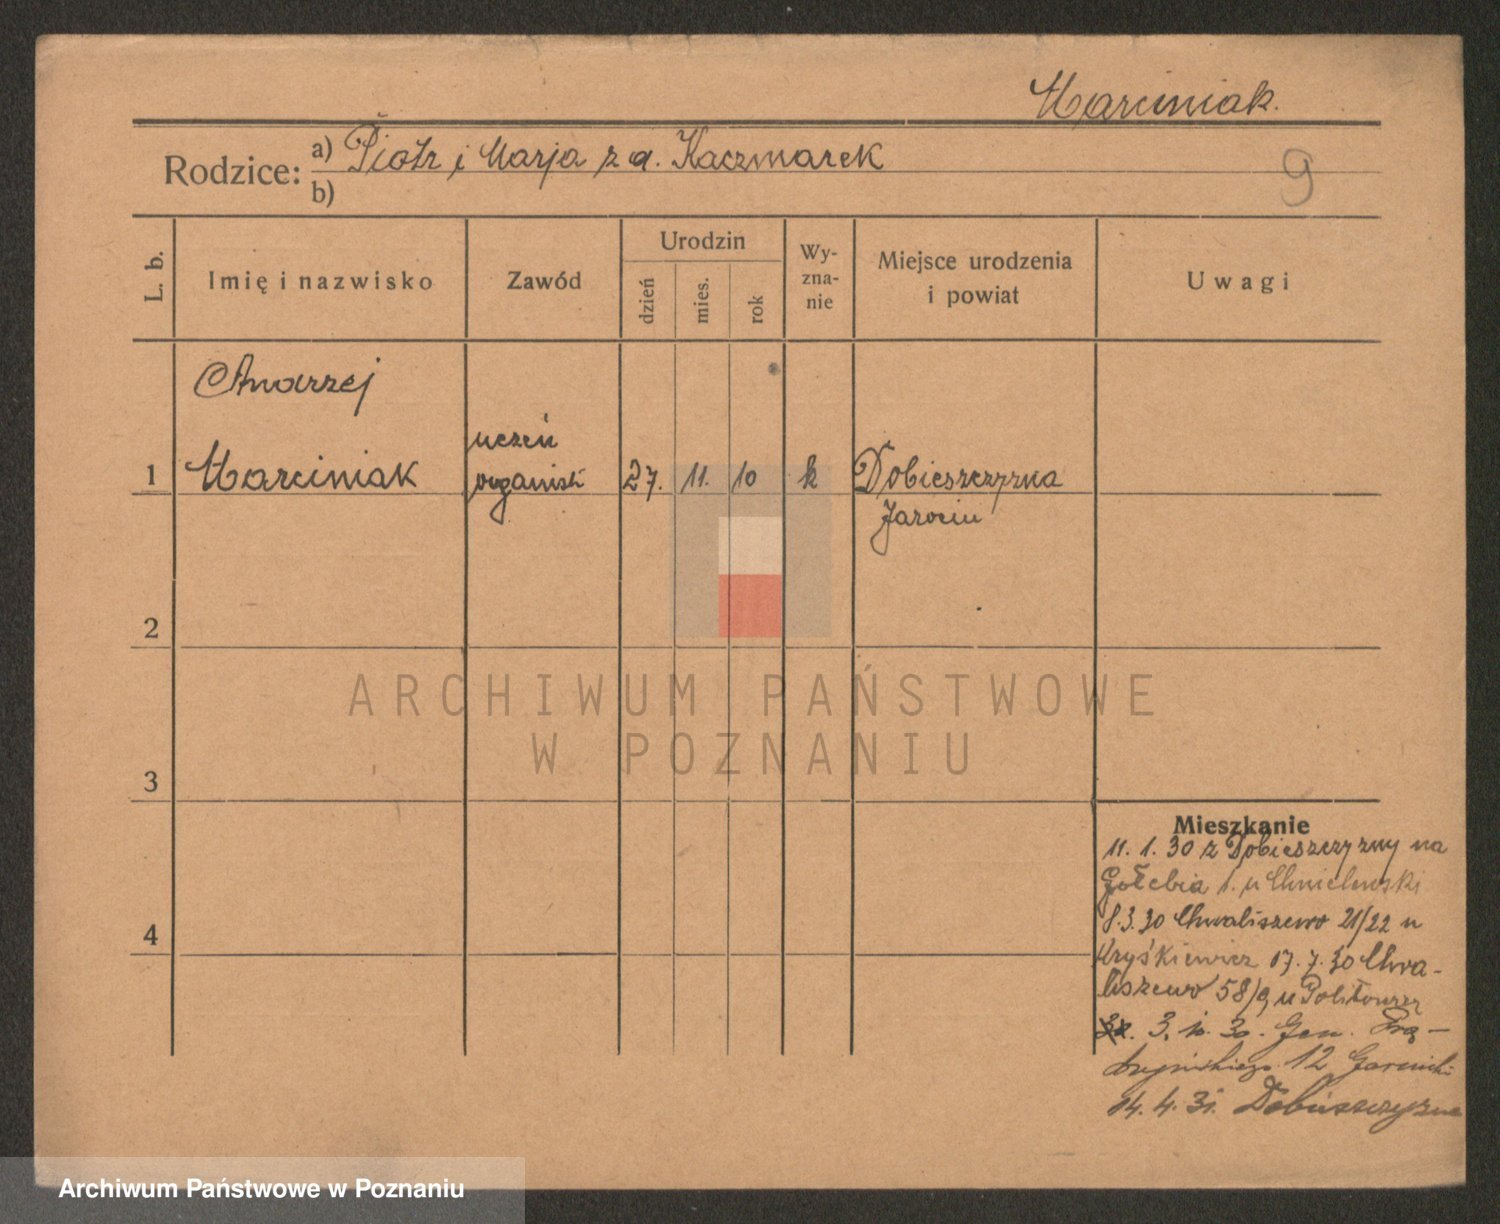 Marciniak.
Rodzice: a) Piotr i Marja z d. Kaczmarek
b)
9
L. b.
Imię i nazwisko
Zawód
Urodzin
dzień
mies.
rok
Wy-
zna-
nie
Miejsce urodzenia
i powiat
Uwagi
Andrzej
uczeń
1 Marciniak organisti 27. 11. 10 k Dobieszczyzna
Jarocin
2
3
4
Mieszkanie
11. 1. 30 z Dobieszczyzny na
Gołebia 1. u Chmielewski
8.3.30 Chwaliszewo 21/22 u
Kryśkiewicz 17.7.30 Chwa-
liszewo 58/9 u
3. 10. 30. Gen. Prą-
dzyńskiego 12
14. 4. 31. Dobieszczyzna
ARCHIWUM PAŃSTWOWE
W POZNANIU
Archiwum Państwowe w Poznaniu